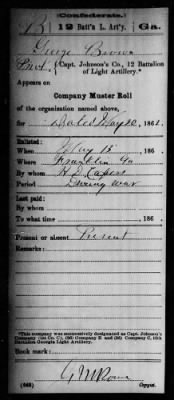 Confederate.
B 12 Batt'n L. Art'y. Ga.
George Brown
Pvt. Capt. Johnson's Co., 12 Battalion
of Light Artillery.*
Appears on
Company Muster Roll
of the organization named above,
for Dated May 20, 1862.
Enlisted:
When May 15, 186 .
Where Franklin Ga
By whom H D Capers
Period During War
Last paid:
By whom
To what time , 186 .
Present or absent Present
Remarks:
*This company was successively designated as Capt. Johnson's
Company
Battalion Georgia Light Artillery.
Book mark:
(642) Copyist.